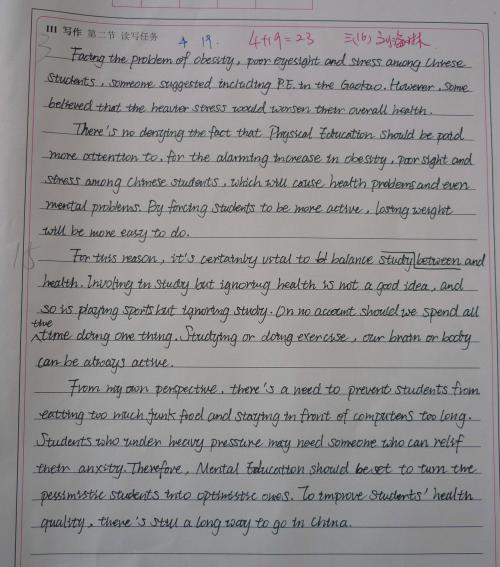 III 写作 第二节 读写任务
4 19. 4+19=23 三(16)
Facing the problem of obesity, poor eyesight and stress among Chinese
students, someone suggested including P.E. in the Gaokao. However, some
believed that the heavier stress would worsen their overall health.
There's no denying the fact that Physical Education should be paid
more attention to, for the alarming increase in obesity, poor sight and
stress among Chinese students, which will cause health problems and even
mental problems. By forcing students to be more active, losing weight
will be more easy to do.
For this reason, it's certainly vital to balance study between and
health. Involing in study but ignoring health is not a good idea, and
so is playing sports but ignoring study. On no account should we spend all
the
time doing one thing. Studying or doing exercise, our brain or body
can be always active.
From my own perspective, there's a need to prevent students from
eatting too much junk food and staying in front of computers too long.
Students who under heavy pressure may need someone who can relif
their anxity. Therefore, Mental Education should be set to turn the
pessimistic students into optimistic ones. To improve students' health
quality, there's still a long way to go in China.